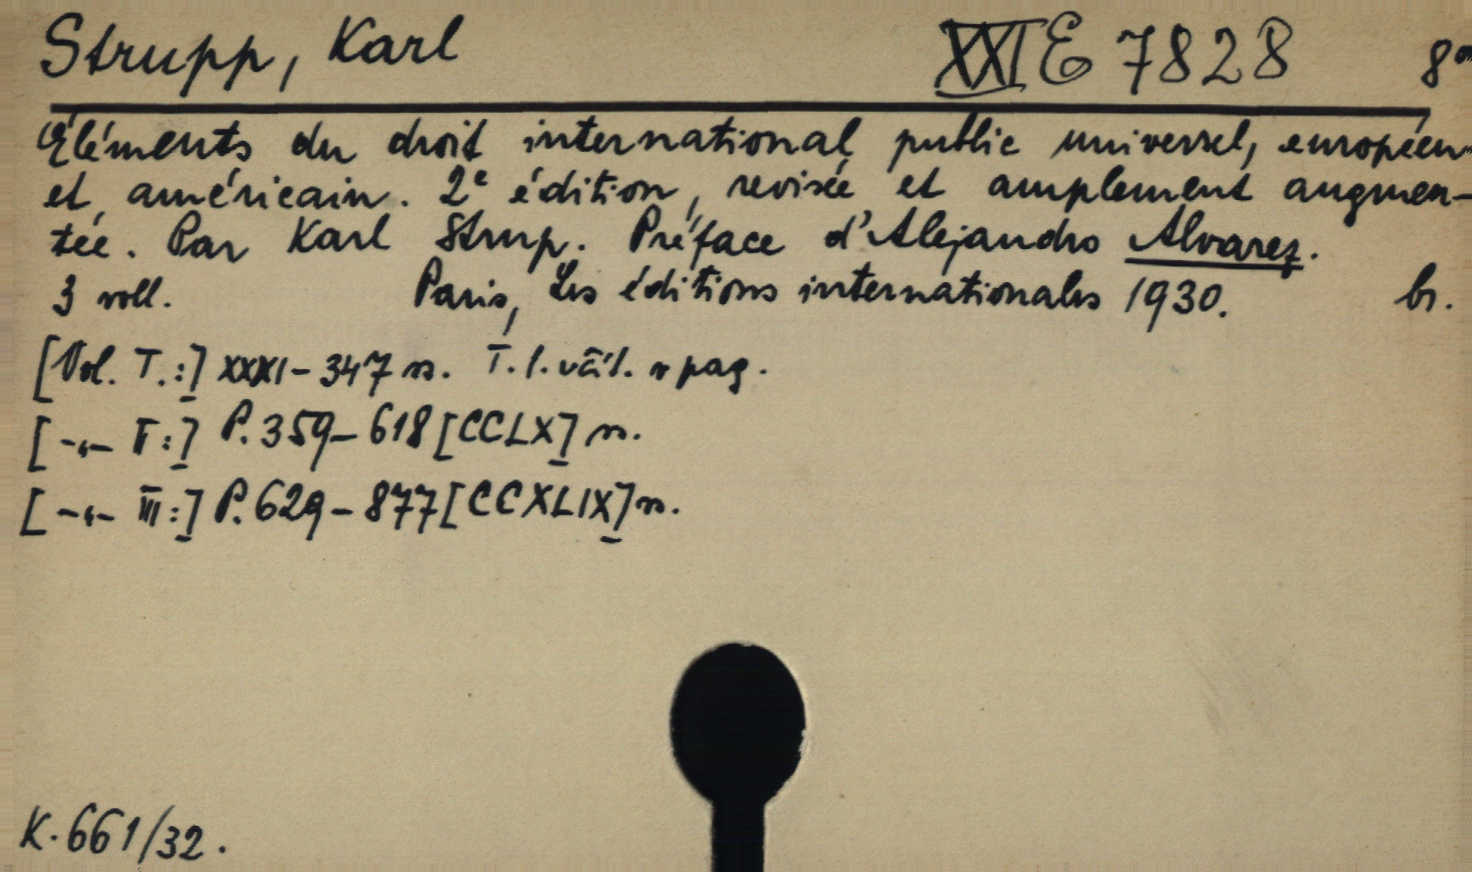 Strupp, Karl XXI E 7828 8°
Éléments du droit international public universel, européen
et américain. 2e édition, revisée et amplement augmen-
tée. Par Karl Strup. Préface d'Alejandro Alvarez.
3 voll. Paris, Les éditions internationales 1930. br.
[Vol. I.:] XXXI-347 s. I. l. v pag.
[-„- II:] P. 359-618 [CCLX] s.
[-„- III:] P. 629-877 [CCXLIX] s.
K. 661/32.